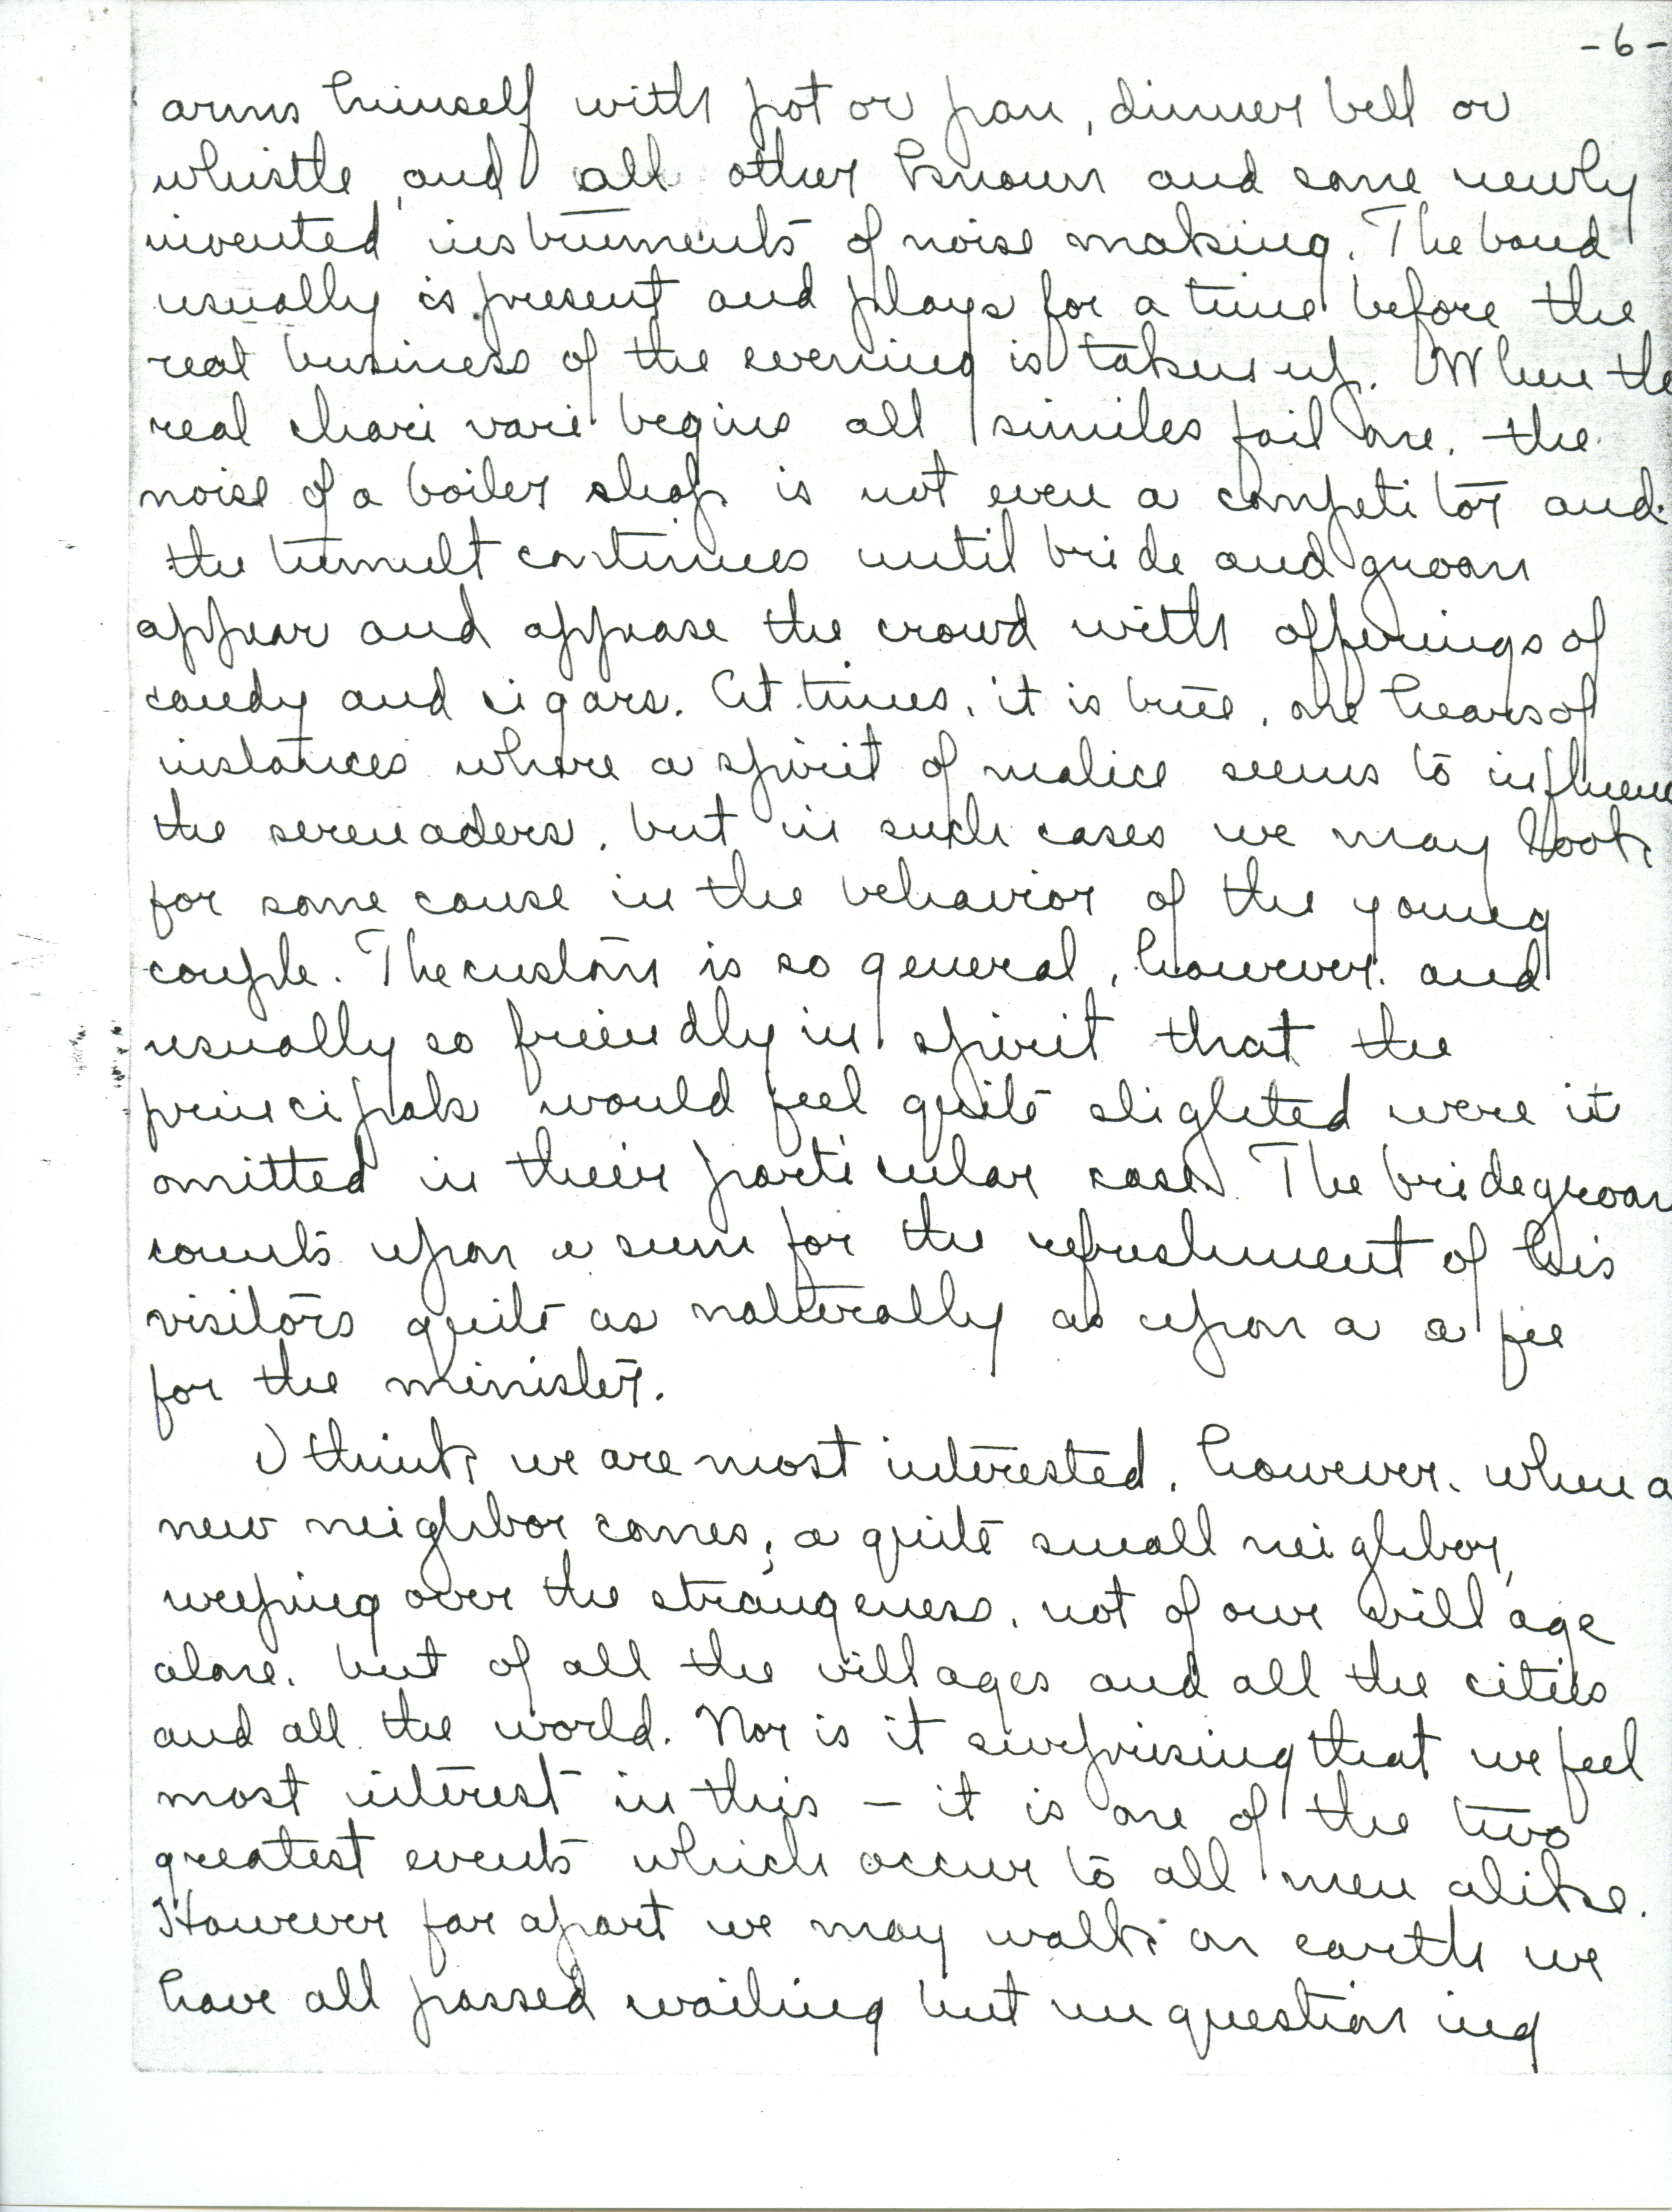 -6-
arms himself with pot or pan, dinner bell or
whistle, and all other known and some newly
invented instruments of noise making. The band
usually is present and plays for a time before the
real business of the evening is taken up. When the
real chari vari begins all similes fail one. the
noise of a boiler shop is not even a competitor and
the tumult continues until bride and groom
appear and appease the crowd with offerings of
candy and cigars. At times, it is true, one hears of
instances where a spirit of malice seems to influence
the serenaders, but in such cases we may look
for some cause in the behavior of the young
couple. The custom is so general, however, and
usually so friendly in spirit that the
principals would feel quite slighted were it
omitted in their particular case. The bridegroom
counts upon a sum for the refreshment of his
visitors quite as natturally as upon a a fee
for the minister.
I think we are most interested, however, when a
new neighbor comes; a quite small neighbor,
weeping over the strangeness, not of our village
alone, but of all the villages and all the cities
and all the world. Nor is it surprising that we feel
most interest in this – it is one of the two
greatest events which occur to all men alike.
However far apart we may walk on earth we
have all passed wailing but unquestioning